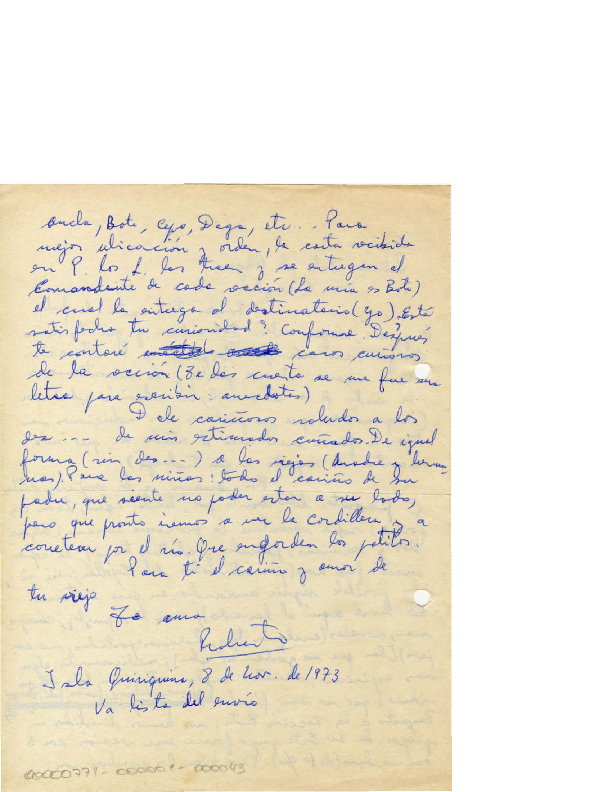 ancla, Bote, Cepo, Daga, etc.. Para
mejor ubicación y orden, la carta recibida
en P. los L. las traen y se entregan al
Comandante de cada sección (La mía es Bote)
el cual la entrega al destinatario (yo). Está
satisfecha tu curiosidad? Conforme. Después
te contaré casos curiosos
de la sección (Te das cuenta se me fue una
letra para escribir: anecdotas)
Dele cariñosos saludos a los
des... de mis estimados cuñados. De igual
forma (sin des...) a las viejas (Madre y herma-
nas). Para las niñas: todo el cariño de su
padre, que siente no poder estar a su lado,
pero que pronto iremos a ver la cordillera y a
corretear por el río. Que engorden los patitos.
Para ti el cariño y amor de
tu viejo
Te ama
Roberto
Isla Quiriquina, 8 de Nov. de 1973
Va lista del envío
00000771-000001-000043